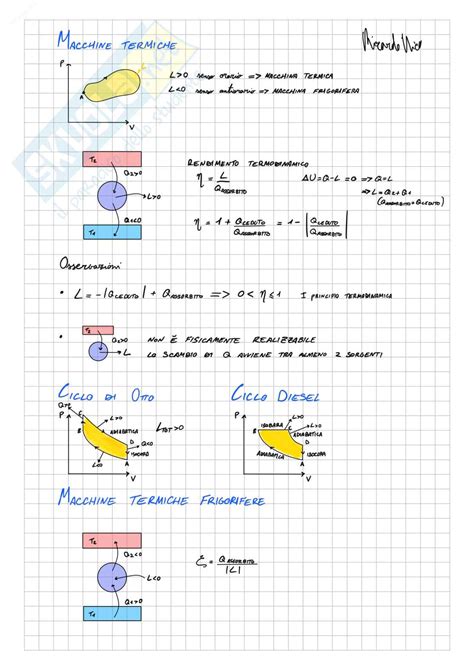 MACCHINE TERMICHE
P
A
V
L>0 senso orario => MACCHINA TERMICA
L<0 senso antiorario => MACCHINA FRIGORIFERA
SKUOLA.net
T2
Q2>0
L>0
Q1<0
T1
RENDIMENTO TERMODINAMICO
η = L / QASSORBITO
ΔU = Q-L = 0 => Q=L
=> L = Q2+Q1
(QASSORBITO+QCEDUTO)
η = 1 + QCEDUTO / QASSORBITO = 1 - |QCEDUTO / QASSORBITO|
Osservazioni
• L = -|QCEDUTO| + QASSORBITO => 0 < η ≤ 1 I PRINCIPIO TERMODINAMICA
T2
Q>0
L
• NON È FISICAMENTE REALIZZABILE
LO SCAMBIO DI Q AVVIENE TRA ALMENO 2 SORGENTI
CICLO DI OTTO
Q>0
P
C
L>0
B
ADIABATICA
D
Q<0
ISOCORA
A
L<0
V
LTOT>0
CICLO DIESEL
P
ISOBARA
L>0
B
C
ADIABATICA
D
ADIABATICA
ISOCORA
A
V
MACCHINE TERMICHE FRIGORIFERE
T2
Q2<0
L<0
Q1>0
T1
ξ = QASSORBITO / |L|